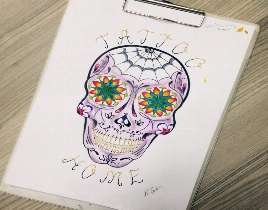 TATTOO
HOME